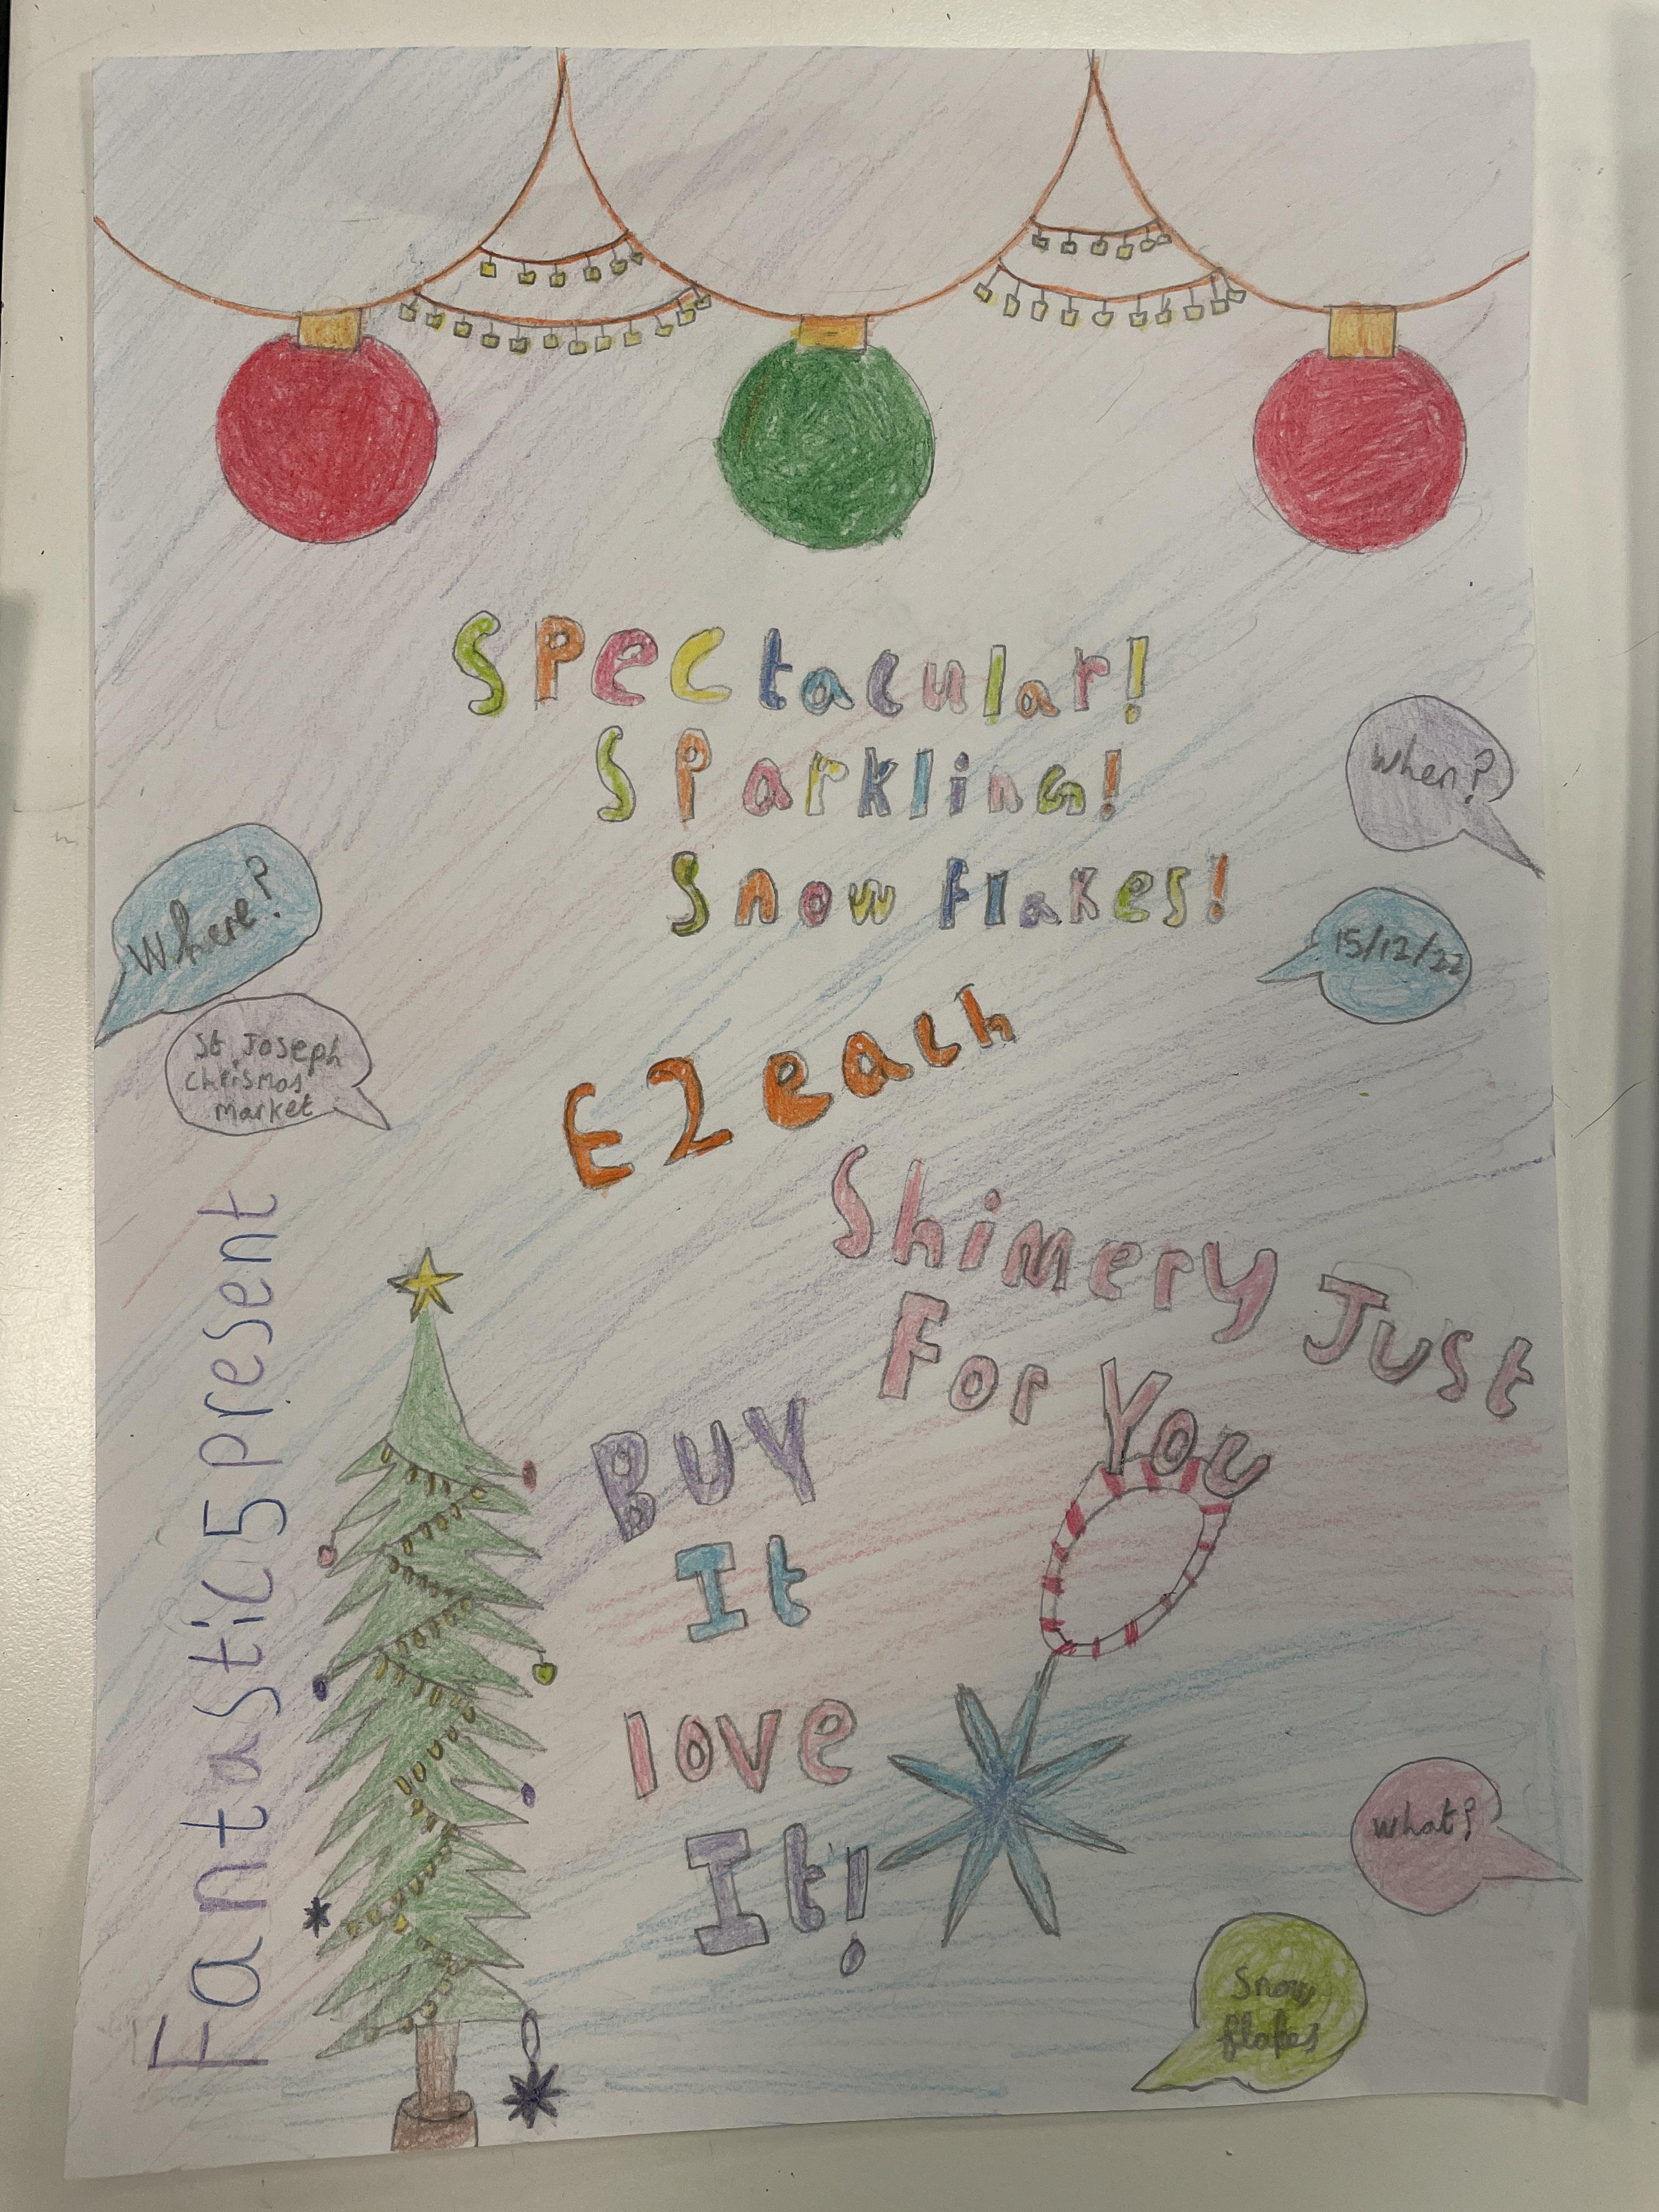 Spectacular!
Sparkling!
Snow flakes!
When?
15/12/22
Where?
St Joseph
Chrismas
market
£2 each
Shimery Just
For You
Fantastic 5 present
BUY
It
love
It!
What?
Snow
flakes